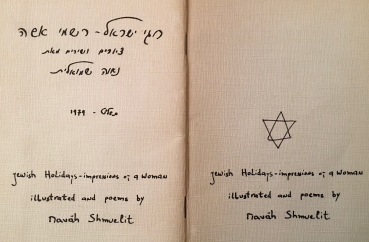 חגי ישראל - רשמי אשה
ציורים ושירים מאת
נאוה שמואלית
תשל"ט - 1979
Jewish Holidays-impressions of a woman
illustrated and poems by
Naváh Shmuelit
Jewish Holidays-impressions of a woman
illustrated and poems by
Naváh Shmuelit